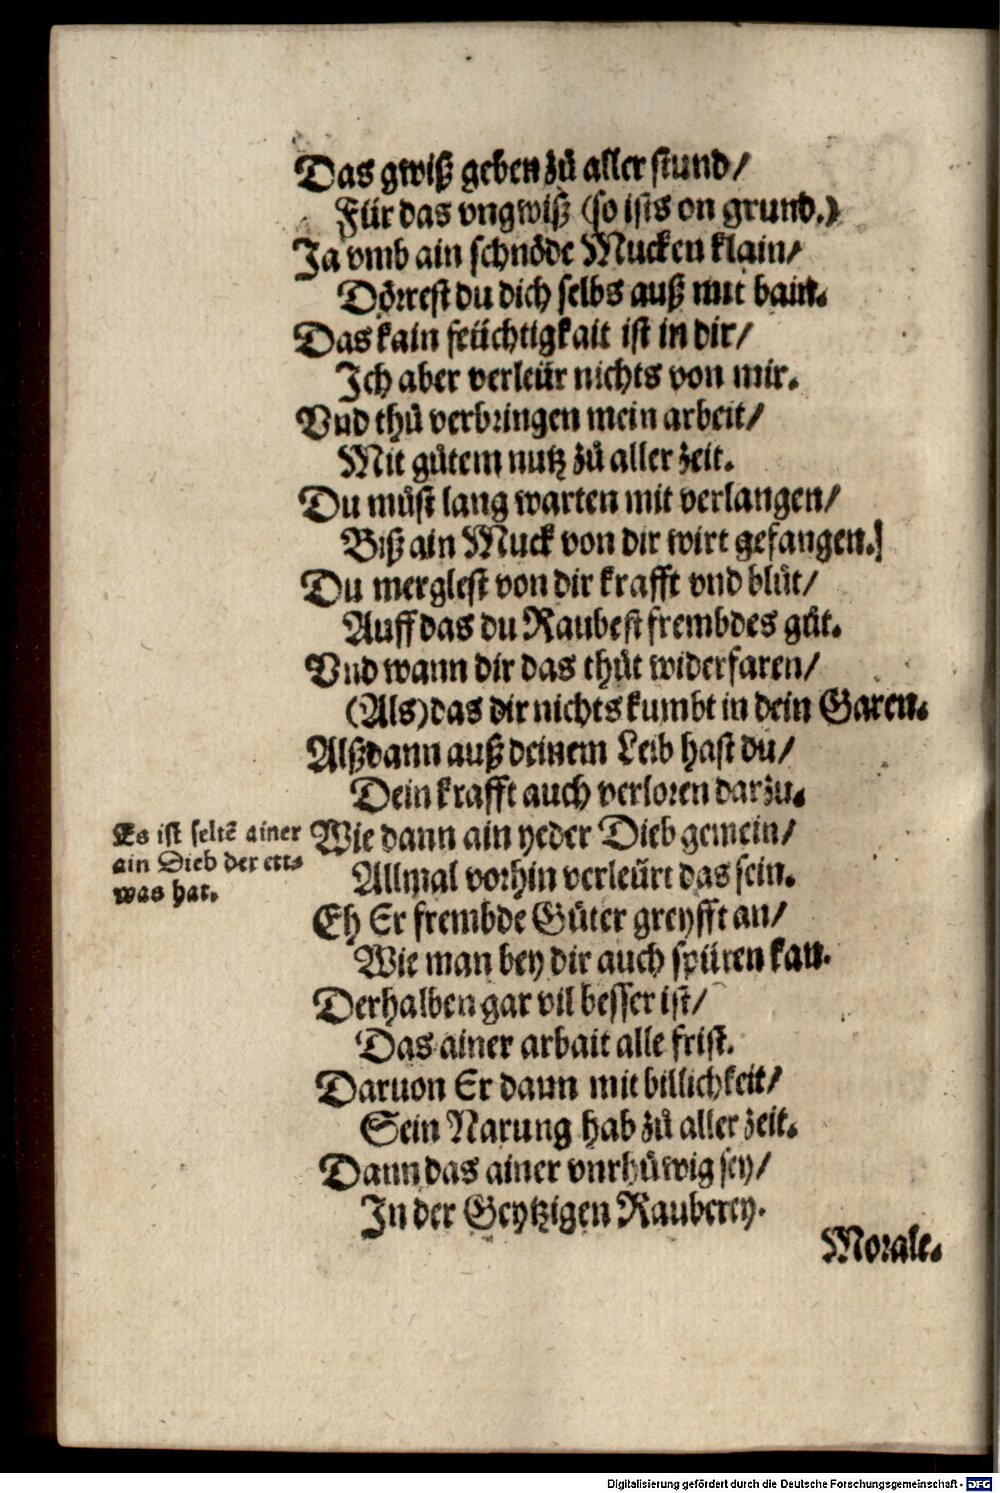 Das gwiß geben zů aller stund/
Für das vngwiß (so ists on grund.)
Ja vmb ain schnöde Mucken klain/
Dörrest du dich selbs auß mit bain.
Das kain feüchtigkait ist in dir/
Ich aber verleür nichts von mir.
Vnd thů verbringen mein arbeit/
Mit gůtem nutz zů aller zeit.
Du můst lang warten mit verlangen/
Biß ain Muck von dir wirt gefangen.]
Du merglest von dir krafft vnd blůt/
Auff das du Raubest frembdes gůt.
Vnd wann dir das thůt widerfaren/
(Als) das dir nichts kumbt in dein Garen.
Alßdann auß deinem Leib hast du/
Dein krafft auch verloren darzu.
Es ist seltē ainer
ain Dieb der ett-
was hat.
Wie dann ain yeder Dieb gemein/
Allmal vorhin verleürt das sein.
Eh Er frembde Güter greyfft an/
Wie man bey dir auch spüren kan.
Derhalben gar vil besser ist/
Das ainer arbait alle frist.
Daruon Er dann mit billichkeit/
Sein Narung hab zů aller zeit.
Dann das ainer vnrhůwig sey/
In der Geytzigen Rauberey.
Morale.
Digitalisierung gefördert durch die Deutsche Forschungsgemeinschaft - DFG